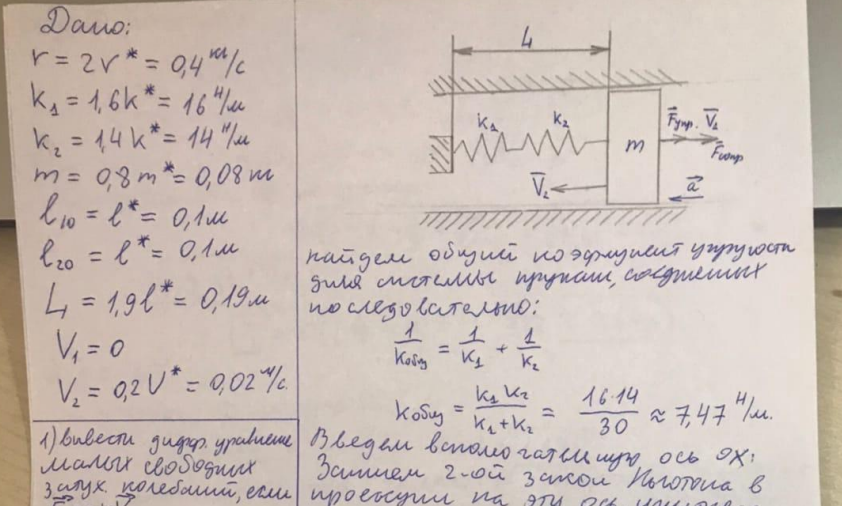 Дано:
r = 2r* = 0,4 кг/с
k₁ = 1,6k* = 16 Н/м
k₂ = 1,4k* = 14 Н/м
m = 0,8m* = 0,08 кг
l₁₀ = l* = 0,1м
l₂₀ = l* = 0,1м
L = 1,9l* = 0,19м
V₁ = 0
V₂ = 0,2V* = 0,02 м/с.
1) вывести дифф. уравнение
малых свободных
затух. колебаний, если
L
k₁ k₂ m F⃗упр. V⃗₁
F⃗сопр
V⃗₂ a⃗
найдем общий коэфициент упругости
для системы пружин, соединеных
последовательно:
1/kобщ = 1/k₁ + 1/k₂
kобщ = k₁k₂/k₁+k₂ = 16·14/30 ≈ 7,47 Н/м.
Введем вспомогательную ось ОХ:
Запишем 2-ой закон Ньютона в
проекции на эту ось